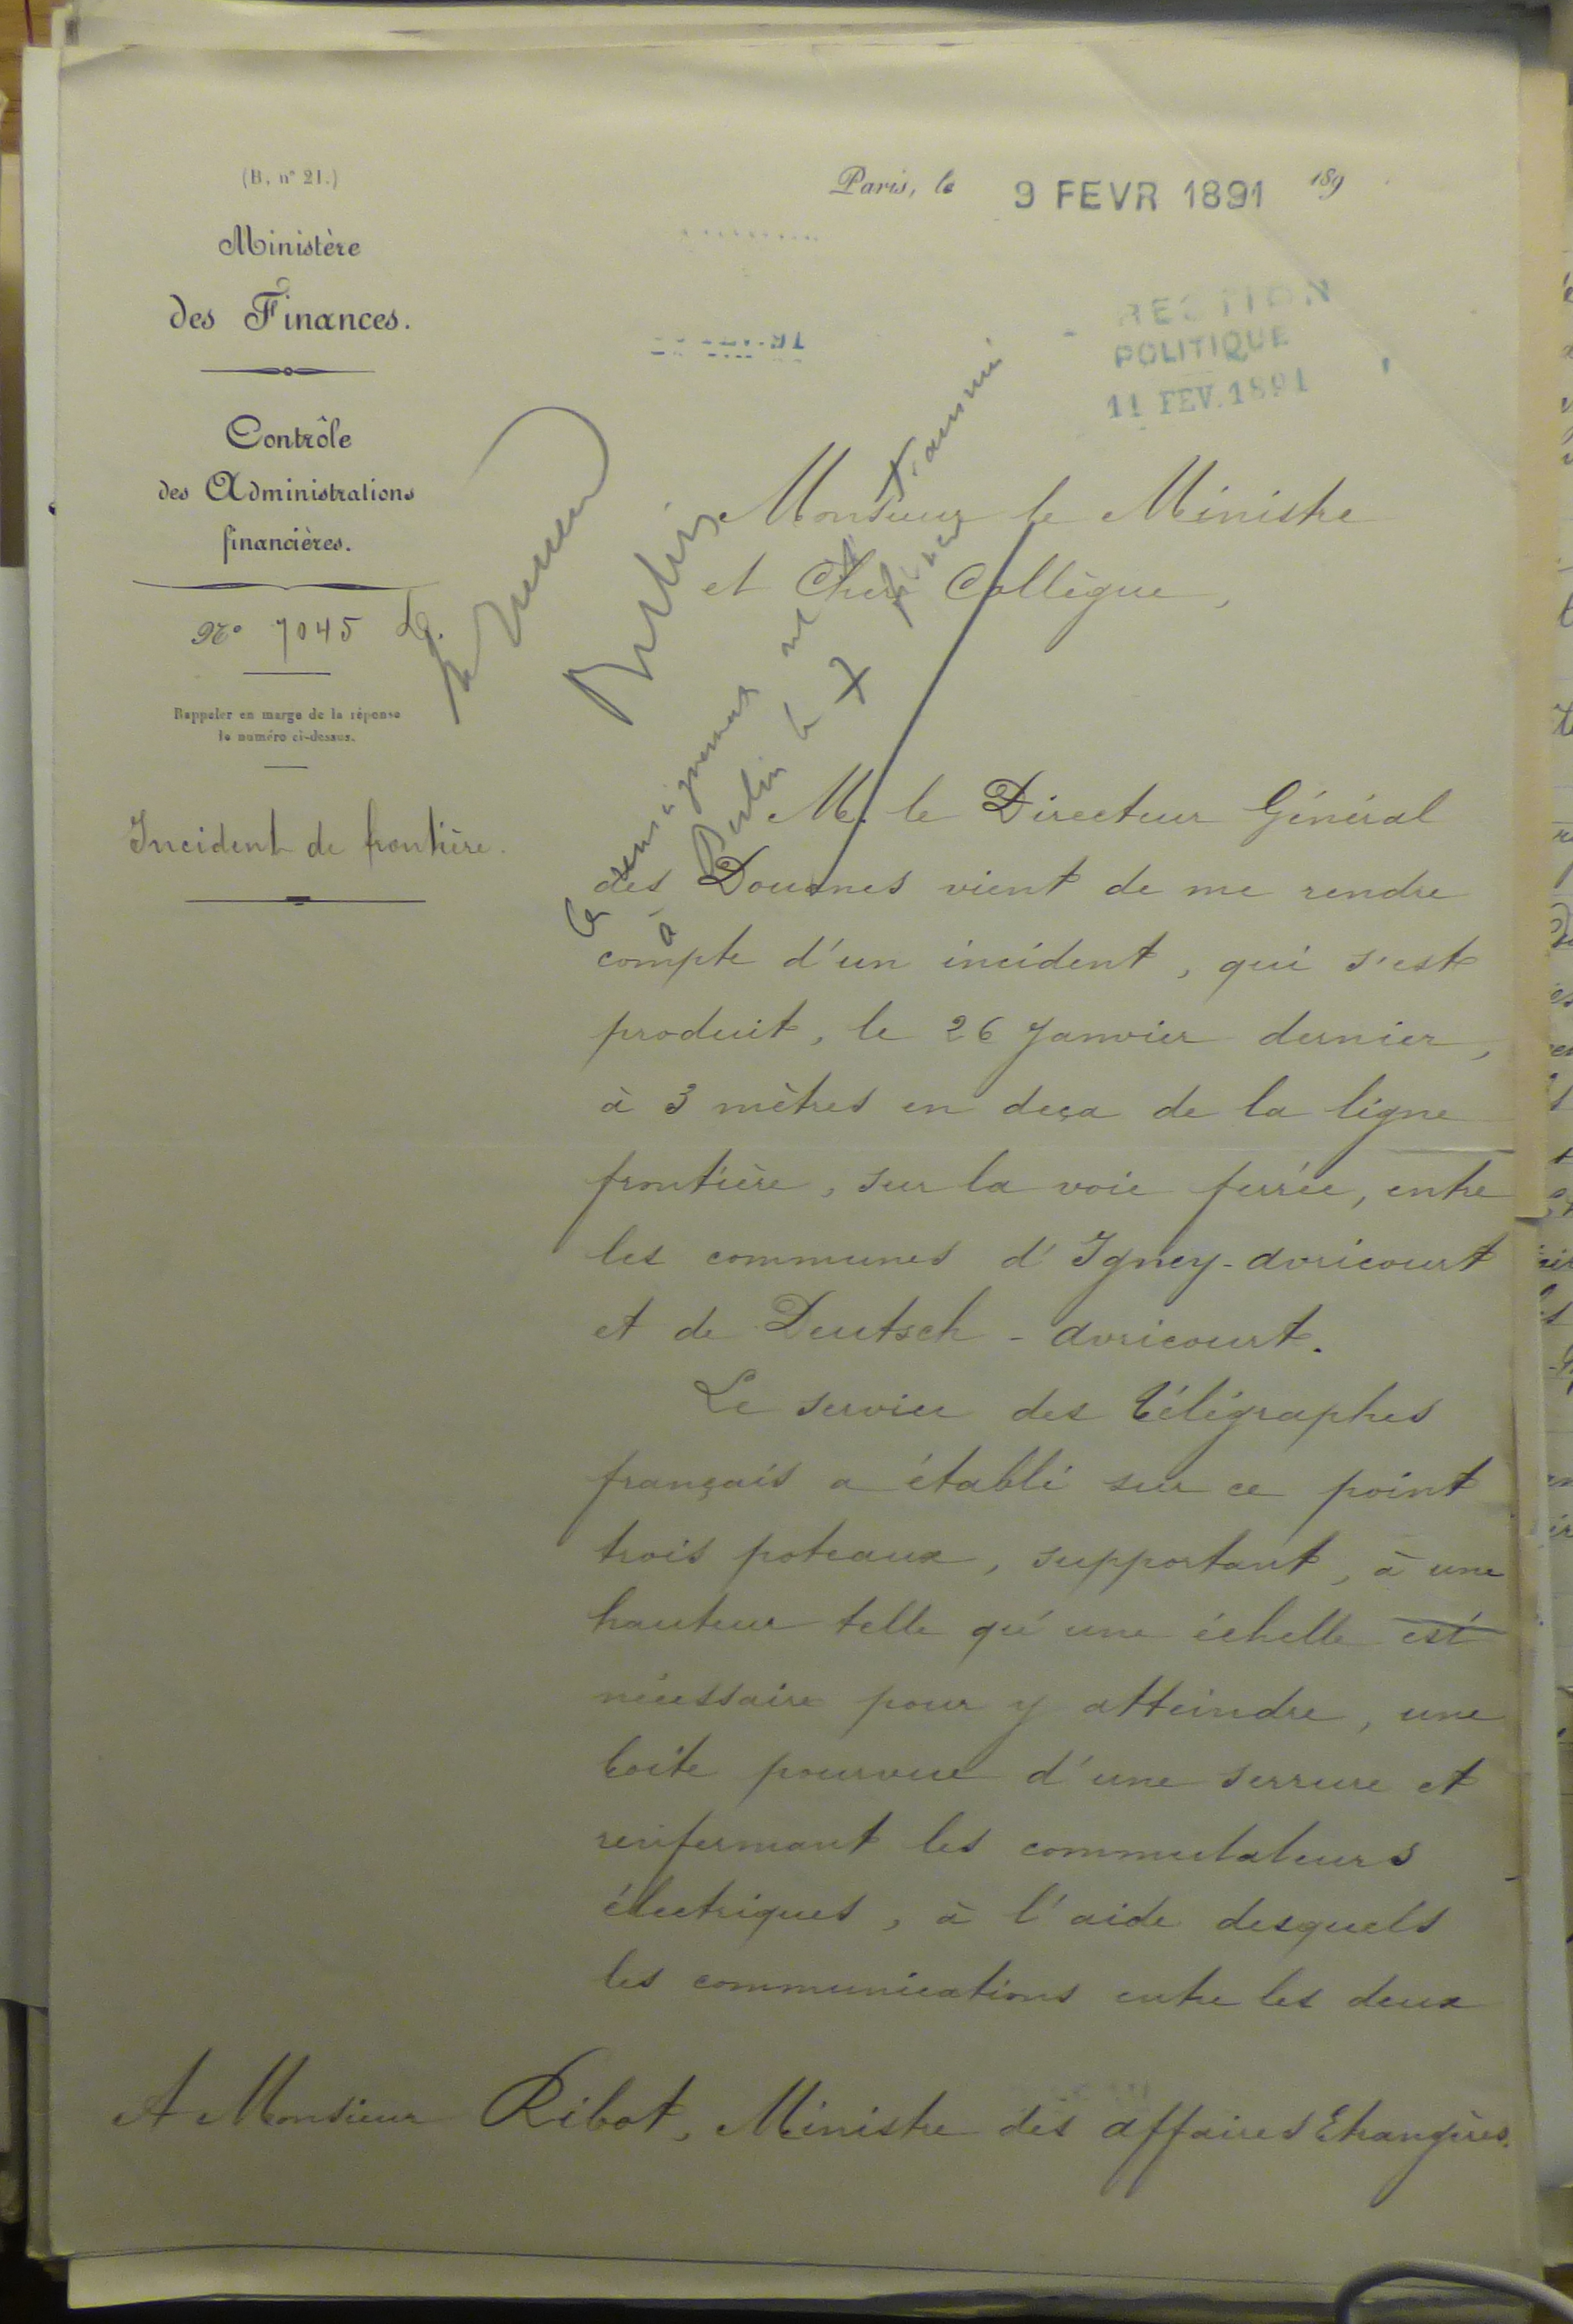 (B. n° 21.)
Paris, le 9 FEVR 1891 189
Ministère
des Finances.
Contrôle
des Administrations
financières.
N° 7045
Rappeler en marge de la réponse
le numéro ci-dessus.
Incident de frontière.
POLITIQUE
11 FEV. 1891
Berlin
Ces renseignements ont été transmis
à Berlin le
Monsieur le Ministre
et Cher Collègue,
M. le Directeur Général
des Douanes vient de me rendre
compte d'un incident, qui s'est
produit, le 26 Janvier dernier,
à 3 mètres en deça de la ligne
frontière, sur la voie ferrée, entre
les communes d'Igney-avricourt
et de Deutsch-avricourt.
Le service des télégraphes
français a établi sur ce point
trois poteaux, supportant, à une
hauteur telle qu'une échelle est
nécessaire pour y atteindre, une
boite pourvue d'une serrure et
renfermant les commutateurs
électriques, à l'aide desquels
les communications entre les deux
A Monsieur Ribot, Ministre des affaires Etrangères.